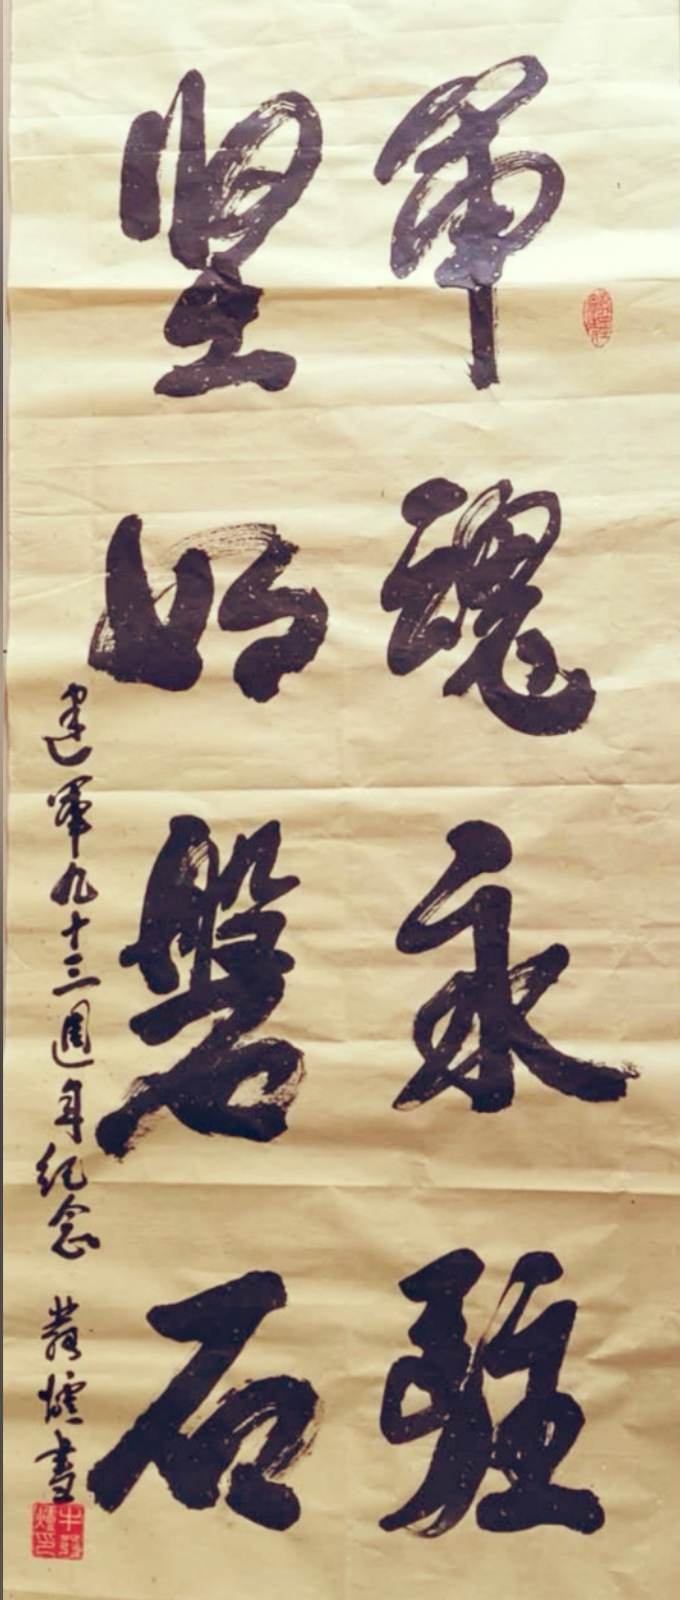 军魂永驻
坚如磐石
建军九十三週年纪念 发耀书